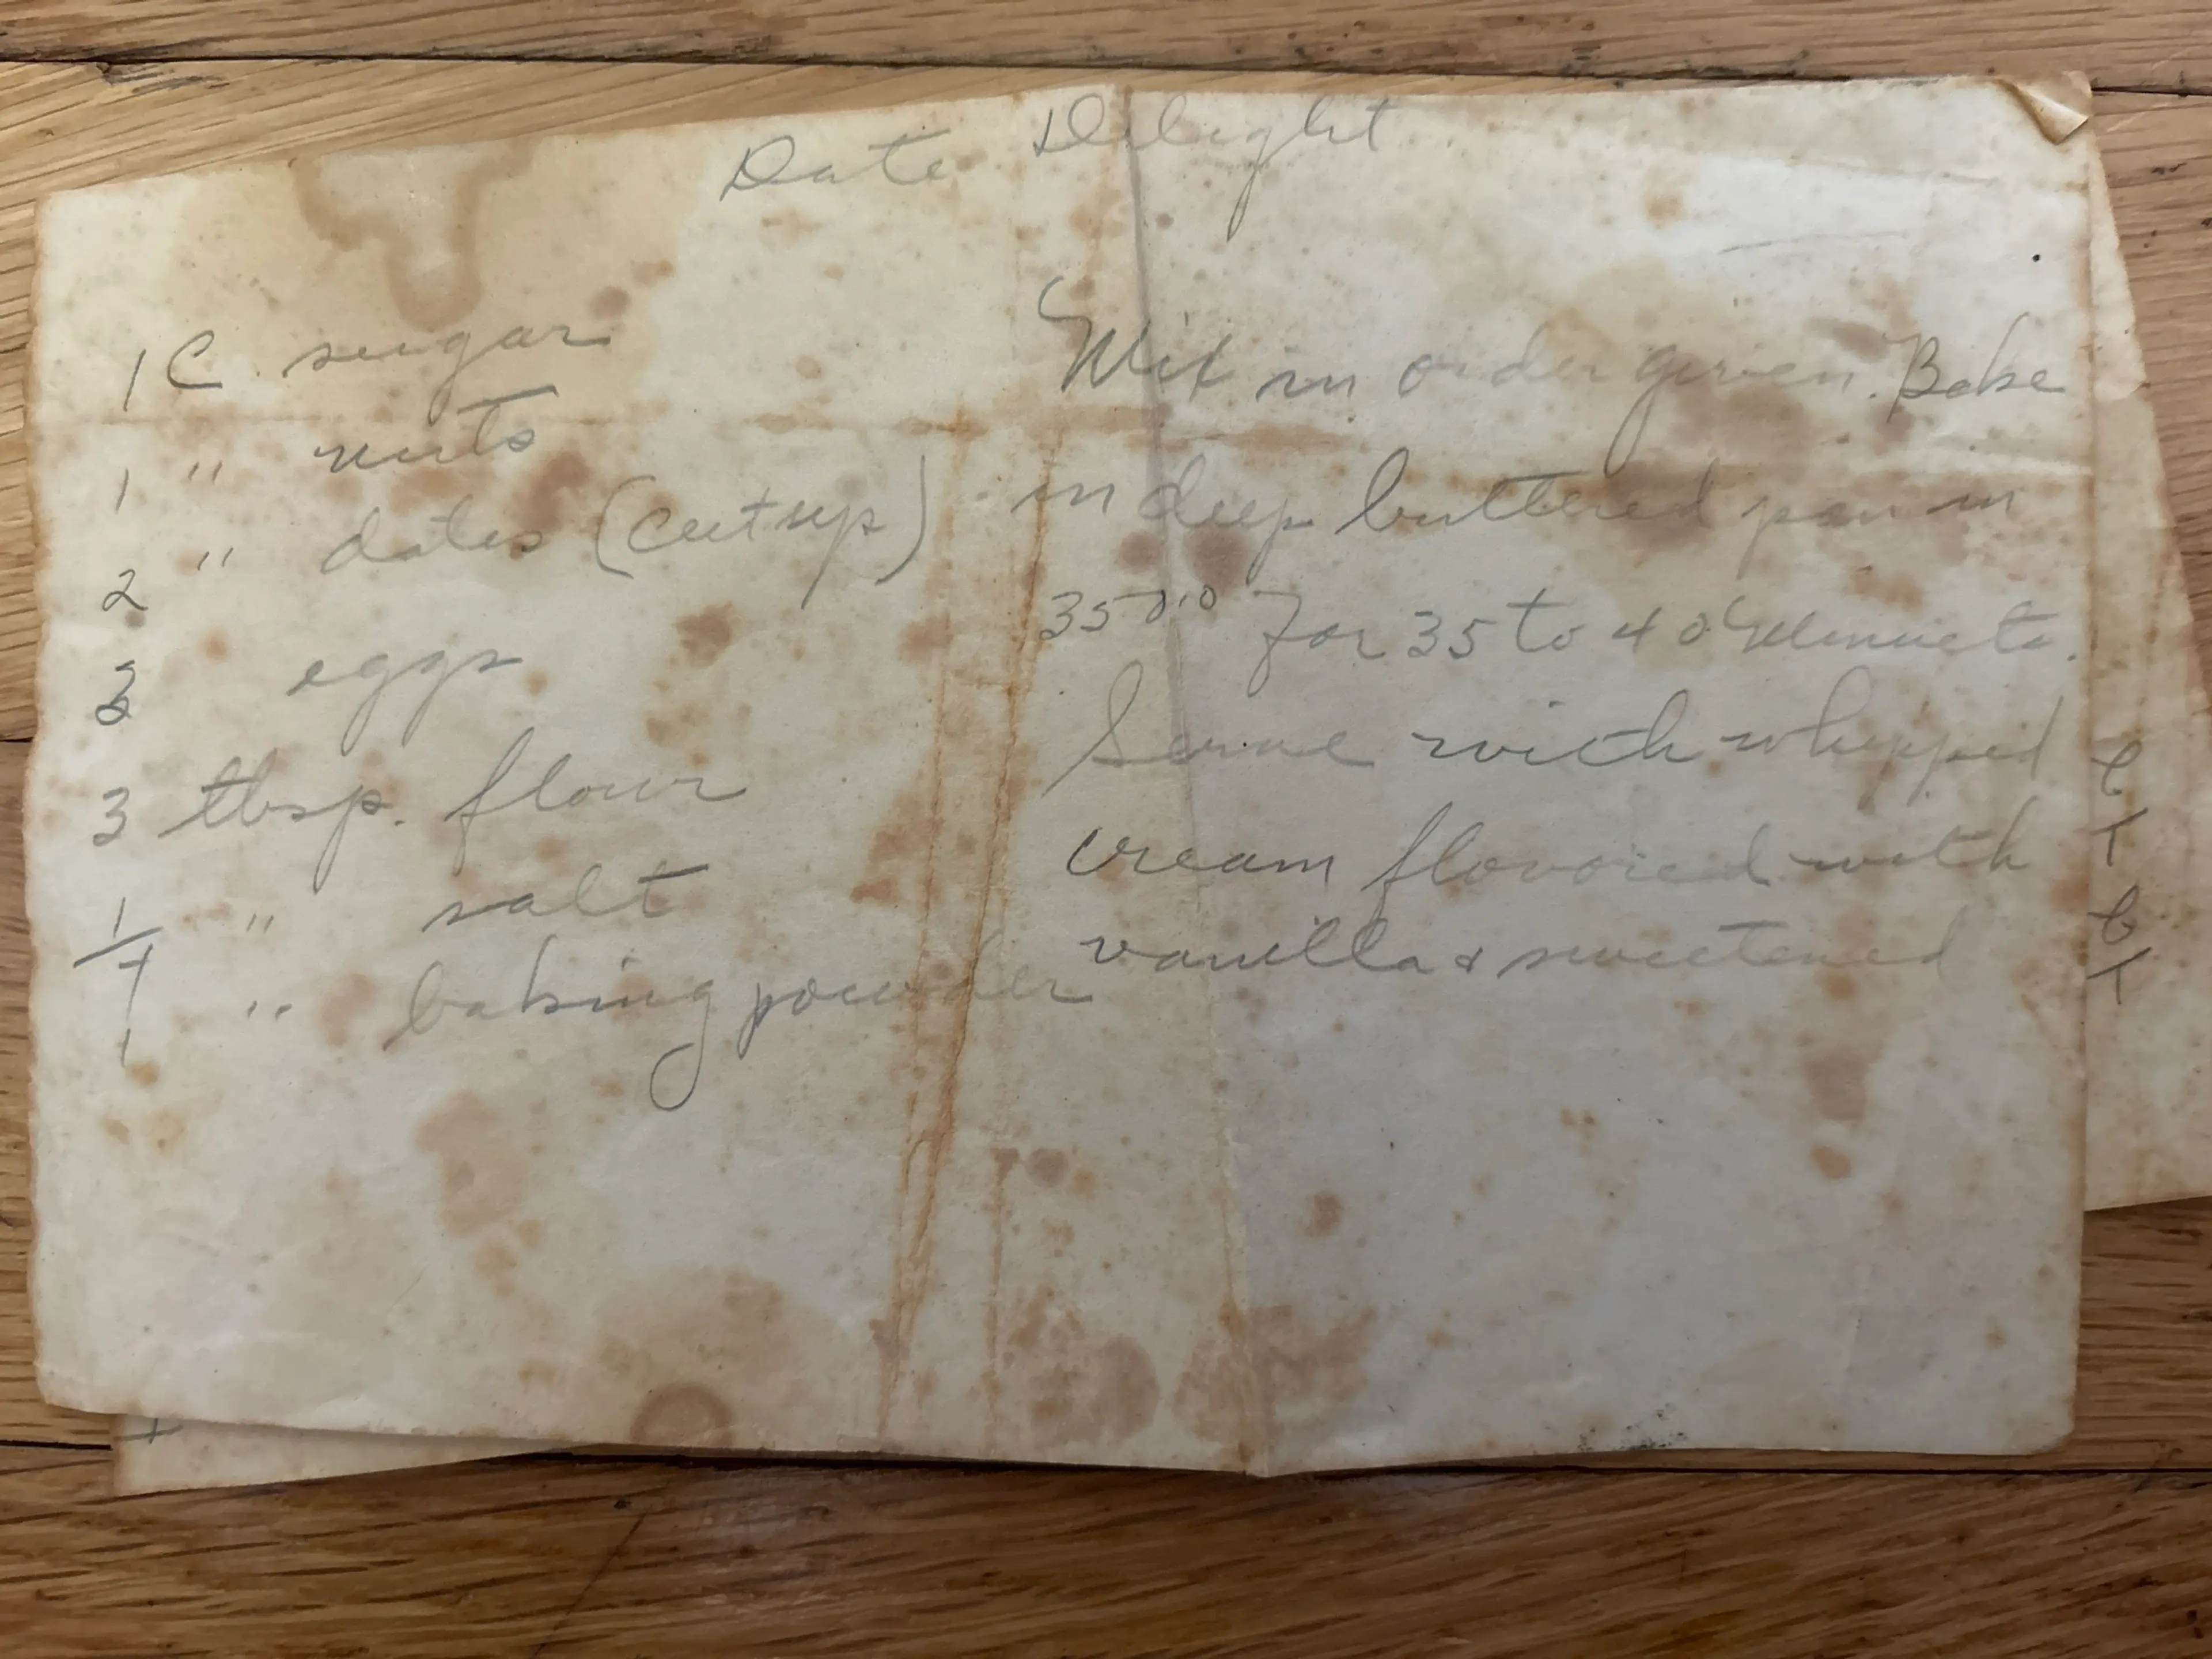 Date Delight
1 C. sugar
1 " nuts
2 " dates (cut up)
eggs
3 tbsp. flour
1/4 " salt
1 " baking powder
Mix in order given. Bake
in deep buttered pan in
350° for 35 to 40 Minuets.
Serve with whipped
cream flavored with
vanilla & sweetened